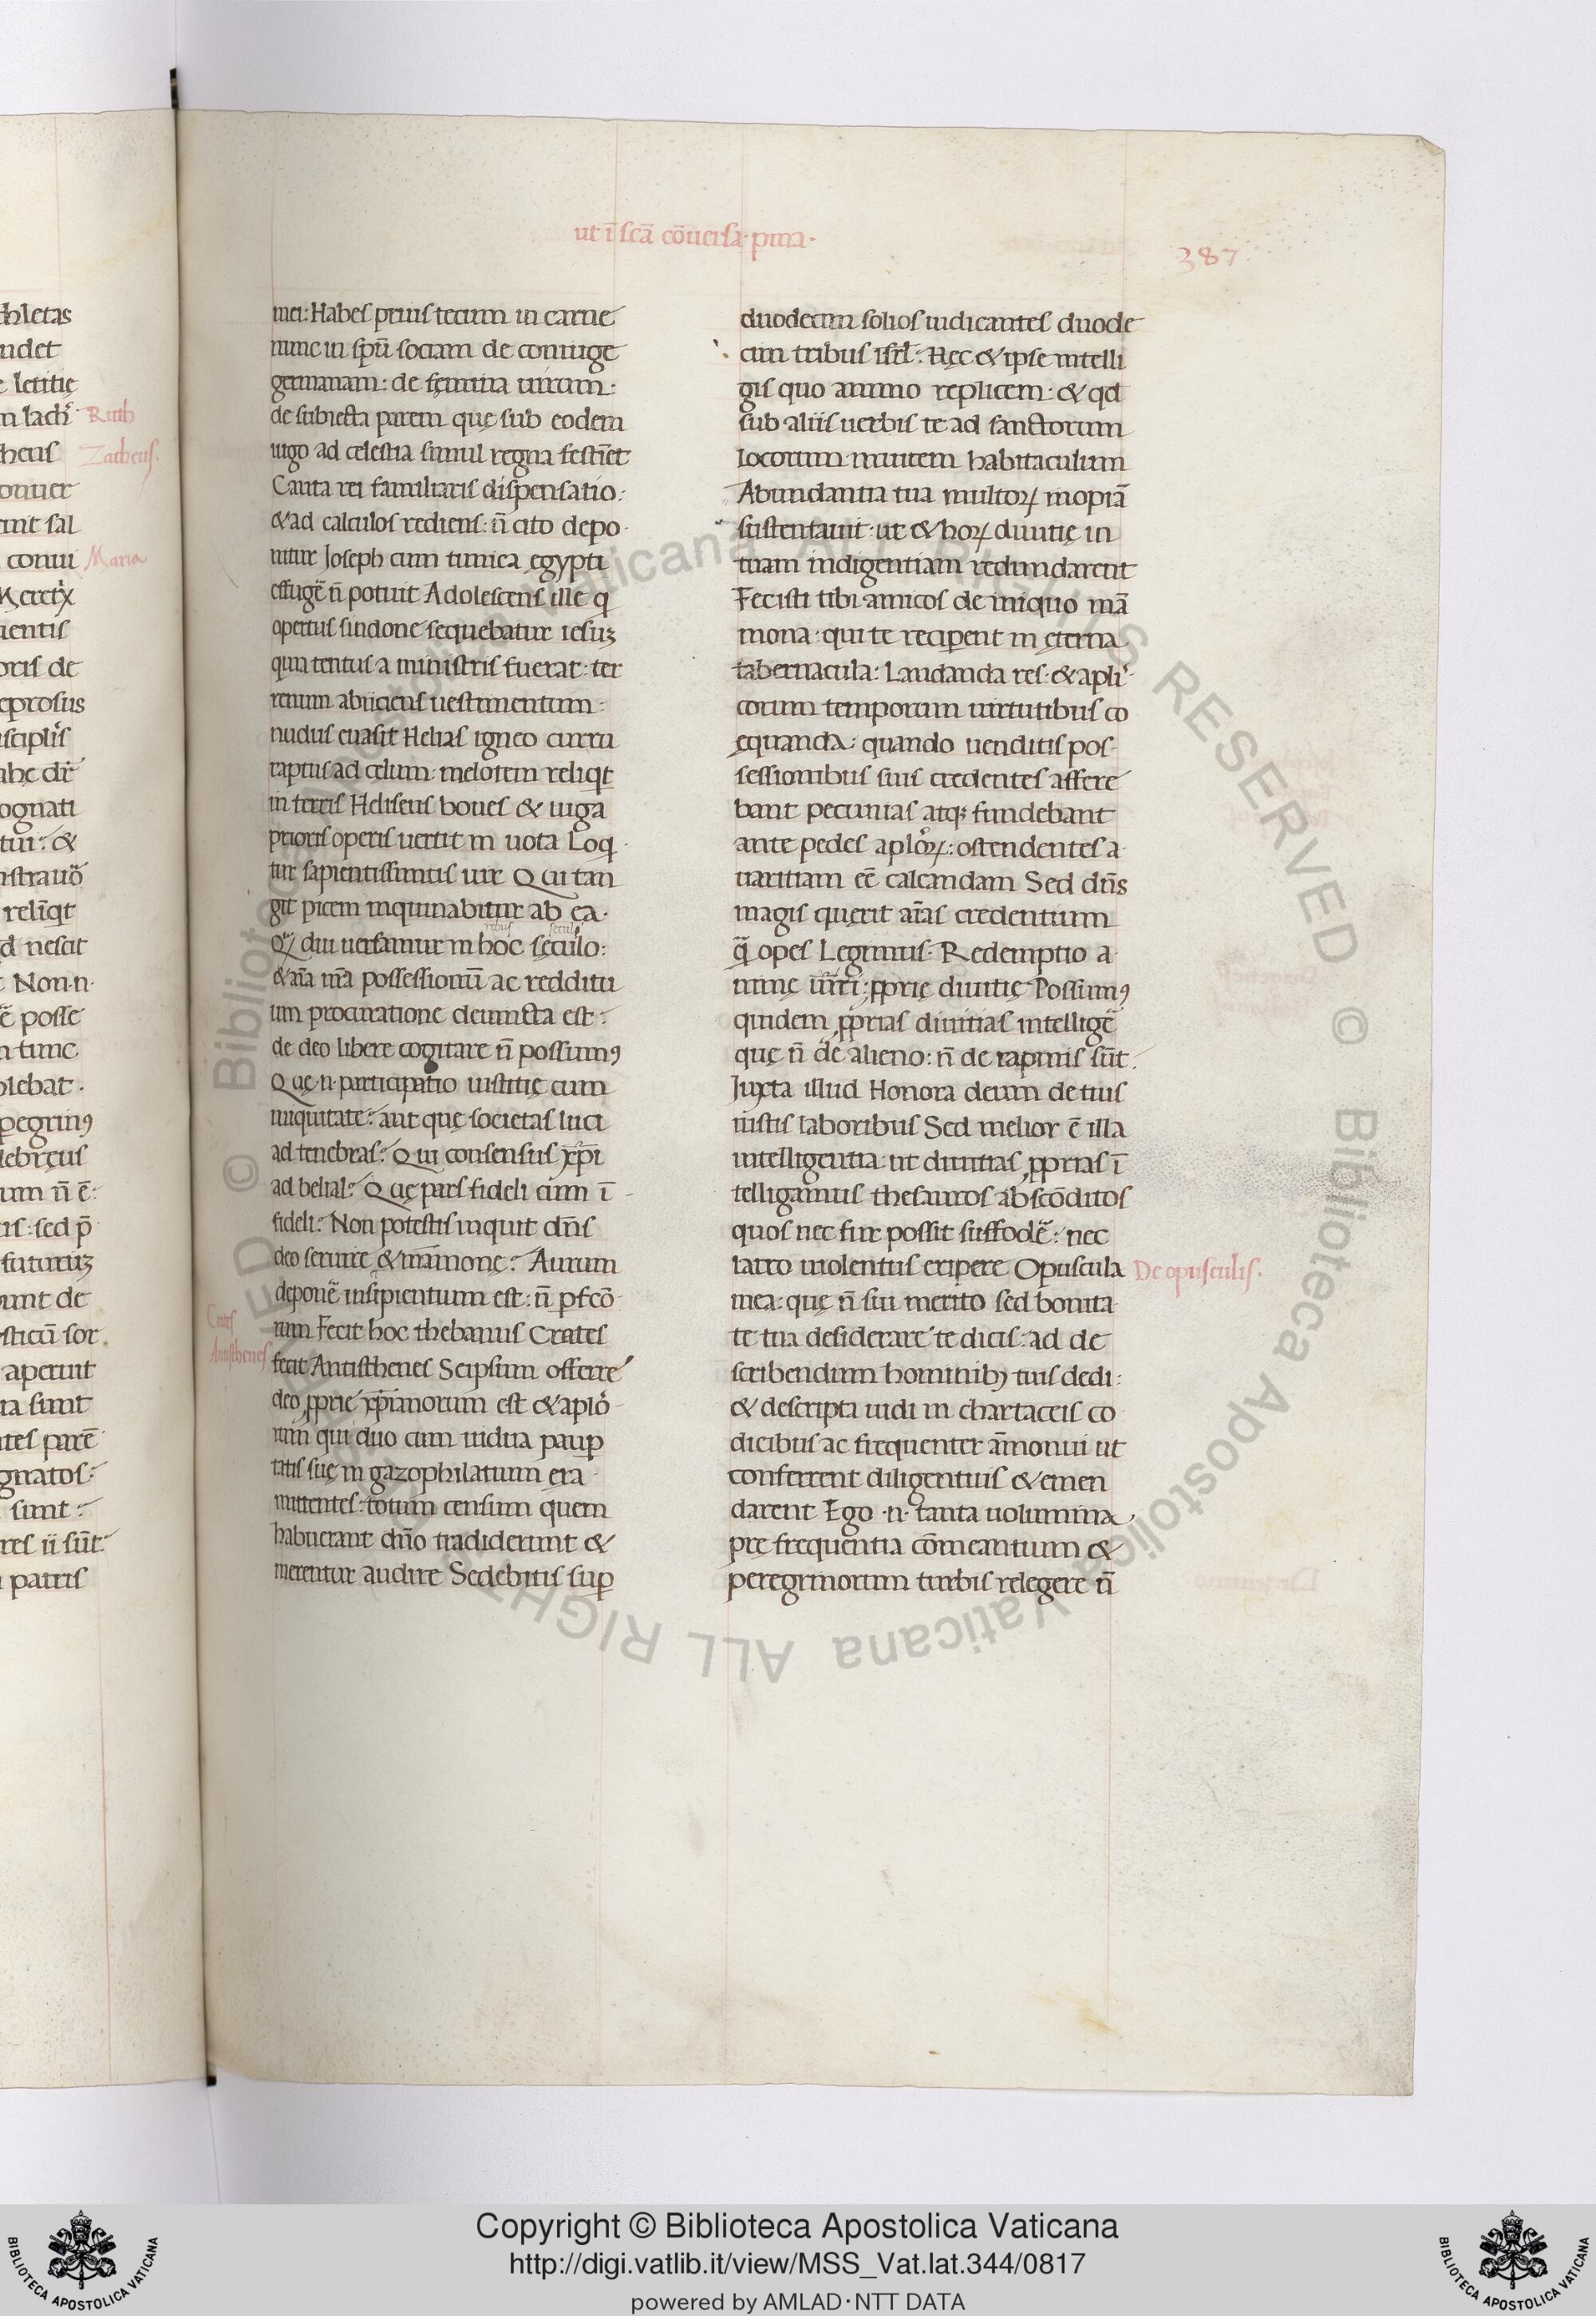 ut ī scā cōuersa· pma·
387
chletas
udet
e letitię
n lach᷑
heus
onuer
unt sal
conui
Meretx̾
uentis
oris de
eprosus
iscipl̾is
ahę dr̄
ognati
tui: &
nistrauō
reliq̄t
d nescit
: Non·n·
ē posse
n tunc
olebat·
ꝑegrinꝰ
lebręus
um n̄ ē:
is: sed p̄
futuruꝫ
ount de
sticū sor
aperuit
ta sunt
tes parē
gnatos:
sunt:
res ii sūt:
patris
Ruth
Zacheus·
Maria
mei: Habes prius tecum in carne
nunc in spū sociam de coniuge
germanam: de fęmina uirum:
de subiecta parem que sub eodem
iugo ad celestia simul regna festīet
Cauta rei familiaris dispensatio:
& ad calculos rediens: n̄ cito depo
nitur Joseph cum tunica ęgypti
effugē n̄ potuit Adolescens ille q
opertus sindone sequebatur iesuꝫ
quia tentus a ministris fuerat: ter
renum abiiciens uestimentum
nudus euasit Helias igneo curru
raptus ad celum: melotem reliqt
in terris Heliseus boues & iuga
prioris operis uertit in uota Loq
tur sapientissimus uir Qui tan
git picem inquinabitur ab ea·
rebus seculi
Qꝫ diu uersamur in hoc sęculo:
& aīa nr̄a possessionū ac redditu
um procuratione deuincta est:
de deo libere cogitare n̄ possumꝰ
Quę·n·participatio iustitię cum
iniquitate: aut quę societas luci
ad tenebras: Qui consensus xp̄i
ad belial: Quę pars fideli cum ī
fideli: Non potestis inquit dn̄s
deo seruire & māmonę: Aurum
deponē insipientium est: n̄ ꝑfcō
rum Fecit hoc thebanus Crates
fecit Antisthenes Seipsum offerre
deo ꝓprie xp̄ianorum est & aplō
rum qui duo cum uidua pauꝑ
tatis suę in gazophilatium era
mittentes: totum censum quem
habuerant dn̄o tradiderunt &
merentur audire Sedebitis suꝑ
Crates
Antisthenes
duodecim solios iudicantes duode
cim tribus isrl̄: Hęc & ipse intelli
gis quo animo replicem: & qd
sub aliis uerbis te ad sanctorum
locorum inuitem habitaculum
Abundantia tua multoꝝ inopiā
sustentauit: ut & hoꝝ diuitię in
tuam indigentiam redundarent
Fecisti tibi amicos de iniquo mā
mona: qui te recipent in ęterna
tabernacula: Laudanda res· & apli̾
corum temporum uirtutibus co
ęquanda: quando uenditis pos
sessionibus suis credentes affere
bant pecunias atqꝫ fundebant
ante pedes aplo̾ꝝ: ostendentes a
uaritiam eē calcandam Sed dn̄s
magis quęrit aīas credentium
q̄ opes Legimus· Redemptio a
nimę uiri: ꝓprię diuitię Possumꝰ
quidem ꝓprias diuitias intelligē
que n̄ de alieno: n̄ de rapinis sūt
Juxta illud Honora deum de tuis
iustis laboribus Sed melior ē illa
intelligentia: ut diuitias ꝓprias ī
telligamus thesauros abscōditos
quos nec fur possit suffodē: nec
latro uiolentus eripere Opuscula
mea: quę n̄ sui merito sed bonita
te tua desiderare te dicis: ad de
scribendum hominibꝰ tuis dedi:
& descripta uidi in chartaceis co
dicibus ac frequenter āmonui ut
conferrent diligentius & emen
darent Ego ·n· tanta uolumina
pre frequentia cōmeantium &
peregrinorum turbis relegere n̄
De opusculis·
© Biblioteca Apostolica Vaticana ALL RIGHTS RESERVED © Biblioteca Apostolica Vaticana ALL RIGHTS RESERVED
Copyright © Biblioteca Apostolica Vaticana
http://digi.vatlib.it/view/MSS_Vat.lat.344/0817
powered by AMLAD·NTT DATA
BIBLIOTECA APOSTOLICA VATICANA
BIBLIOTECA APOSTOLICA VATICANA